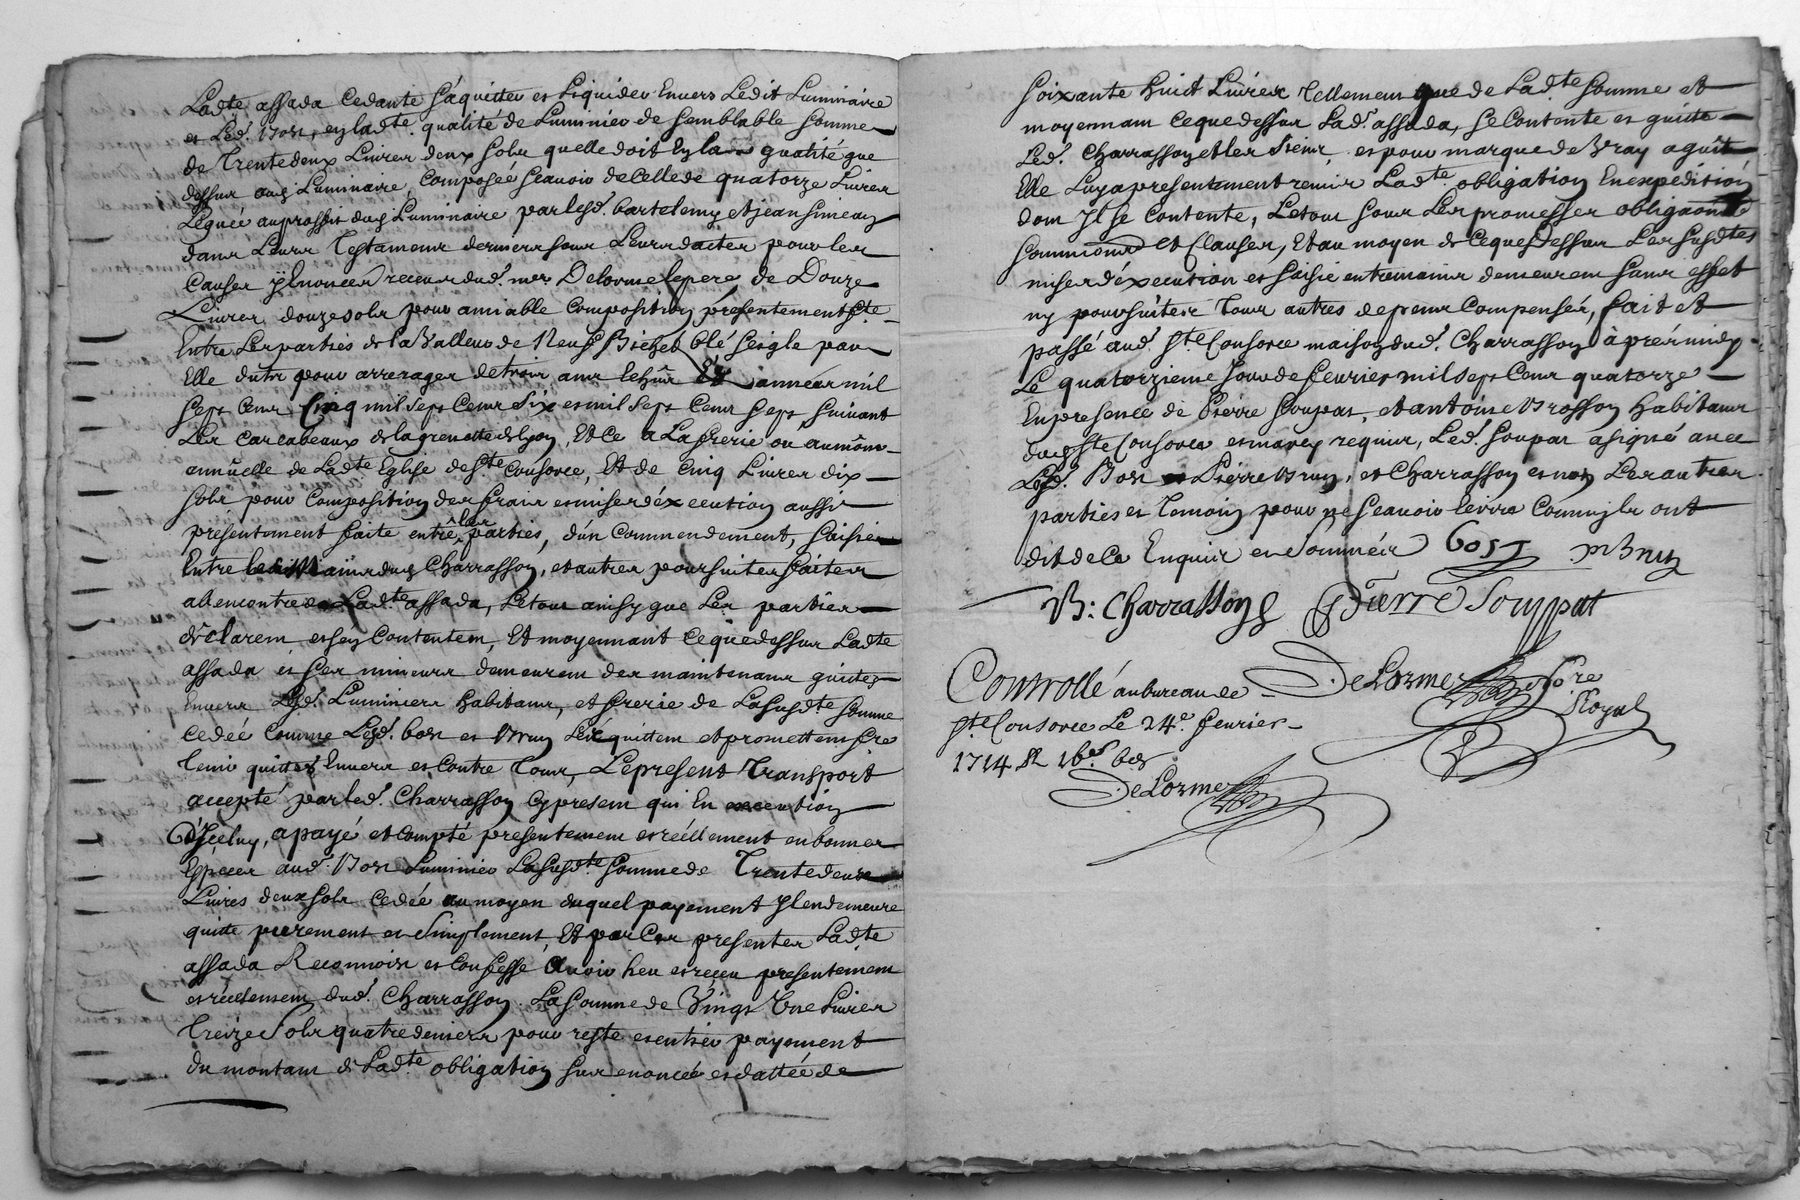 Ladte assada cedante s'aquitter et liquider envers Ledit Luminaire
et Led. Bost, en ladte qualité de Luminier de semblable somme
de Trente deux Livres deux sols quelle doit en la qualité que
dessus aud. Luminaire, composée scavoir de celle de quatorze Livres
Leguée au proffit dud. Luminaire par lesd. bartelemy et jean simean
dans Leurs Testamens derniers sous Leurs dattes pour les
causes y énoncées receus dud. me Delorme le pere, de Douze
Livres douze sols pour amiable composition presentement fte
Entre Les parties de la Valleur de Neuf Bichet blé seigle par
Elle duts pour arrerages de trois ans echus Es années mil
sept cens Cinq mil sept cens six et mil sept cens sept suivant
Les carcabeaux de la grenette de lyon, Et ce a La frerie ou aumône
annuelle de Ladte Eglise de Ste Consorce, Et de cinq Livres dix
sols pour composition des frais et mises d'éxecution aussi
presentement faite entre les parties, d'un commendement, saisie
Entre les Mains dud. Charrasson, et autres poursuites faites
allencontre de Ladte assada, Le tous ainsy que Les parties
declarent et s'en Contentent, Et moyennant ce que dessus Ladte
assada et ses mineurs demeurent des maintenant quittes
envers Lesd. Luminiers habitans, et frerie de La susdte somme
cedée comme Lesd. bost et Brun L'en quittent et promettent fre
tenir quittes Envers et Contre Tous, Le present Transport
accepté par led. Charrasson cy present qui En execution
d'Iceluy, a payé et compté presentement et réellement en bonnes
Especes aud. Bost Luminier La susdte somme de Trente deux
Livres deux sols cedée au moyen duquel payement Il en demeure
quitte purement et simplement, Et par Ces presentes Ladte
assada Reconnoist et Confesse avoir heu et receu presentement
et réellement dud. Charrasson La somme de Vingt Une Livres
Treize sols quatre deniers pour reste et entier payement
du montant de Ladte obligation sus enoncée et dattée de
soixante huit Livres Tellement que de Ladte somme et
moyennant ce que dessus Lad. assada, se Contente et quitte
Led. Charrasson et les siens, et pour marque de Vray aquit
Elle Luy a presentement remis Ladte obligation En expedition
dont Il se contente, Le tous sous Les promesses obligaons
soumissions et Clauses, Et au moyen de ce que dessus Les susdtes
mises d'éxecution et saisie entremains demeurent sans effet
ny poursuites Tous autres depens Compensés, fait et
passé aud. Ste Consorce maison dud. Charrasson après midy
Le quatorzieme Jour de fevrier mil sept cens quatorze
En presence de Pierre Soupat, et antoine Brosson habitans
dud. Ste Consorce et marcy requis, Led. Soupat a signé avec
Lesd. Bost Pierre Brun, et Charrasson et non Les autres
parties et Temoin pour ne scavoir écrire Comm'ils ont
dit de Ce Enquis et sommés Bost P Brun
B: Charrasson Pierre Souppat
DeLorme Nore Royal
Controllé au bureau de
Ste Consorce Le 24e fevrier
1714 R 16s 6d
DeLorme